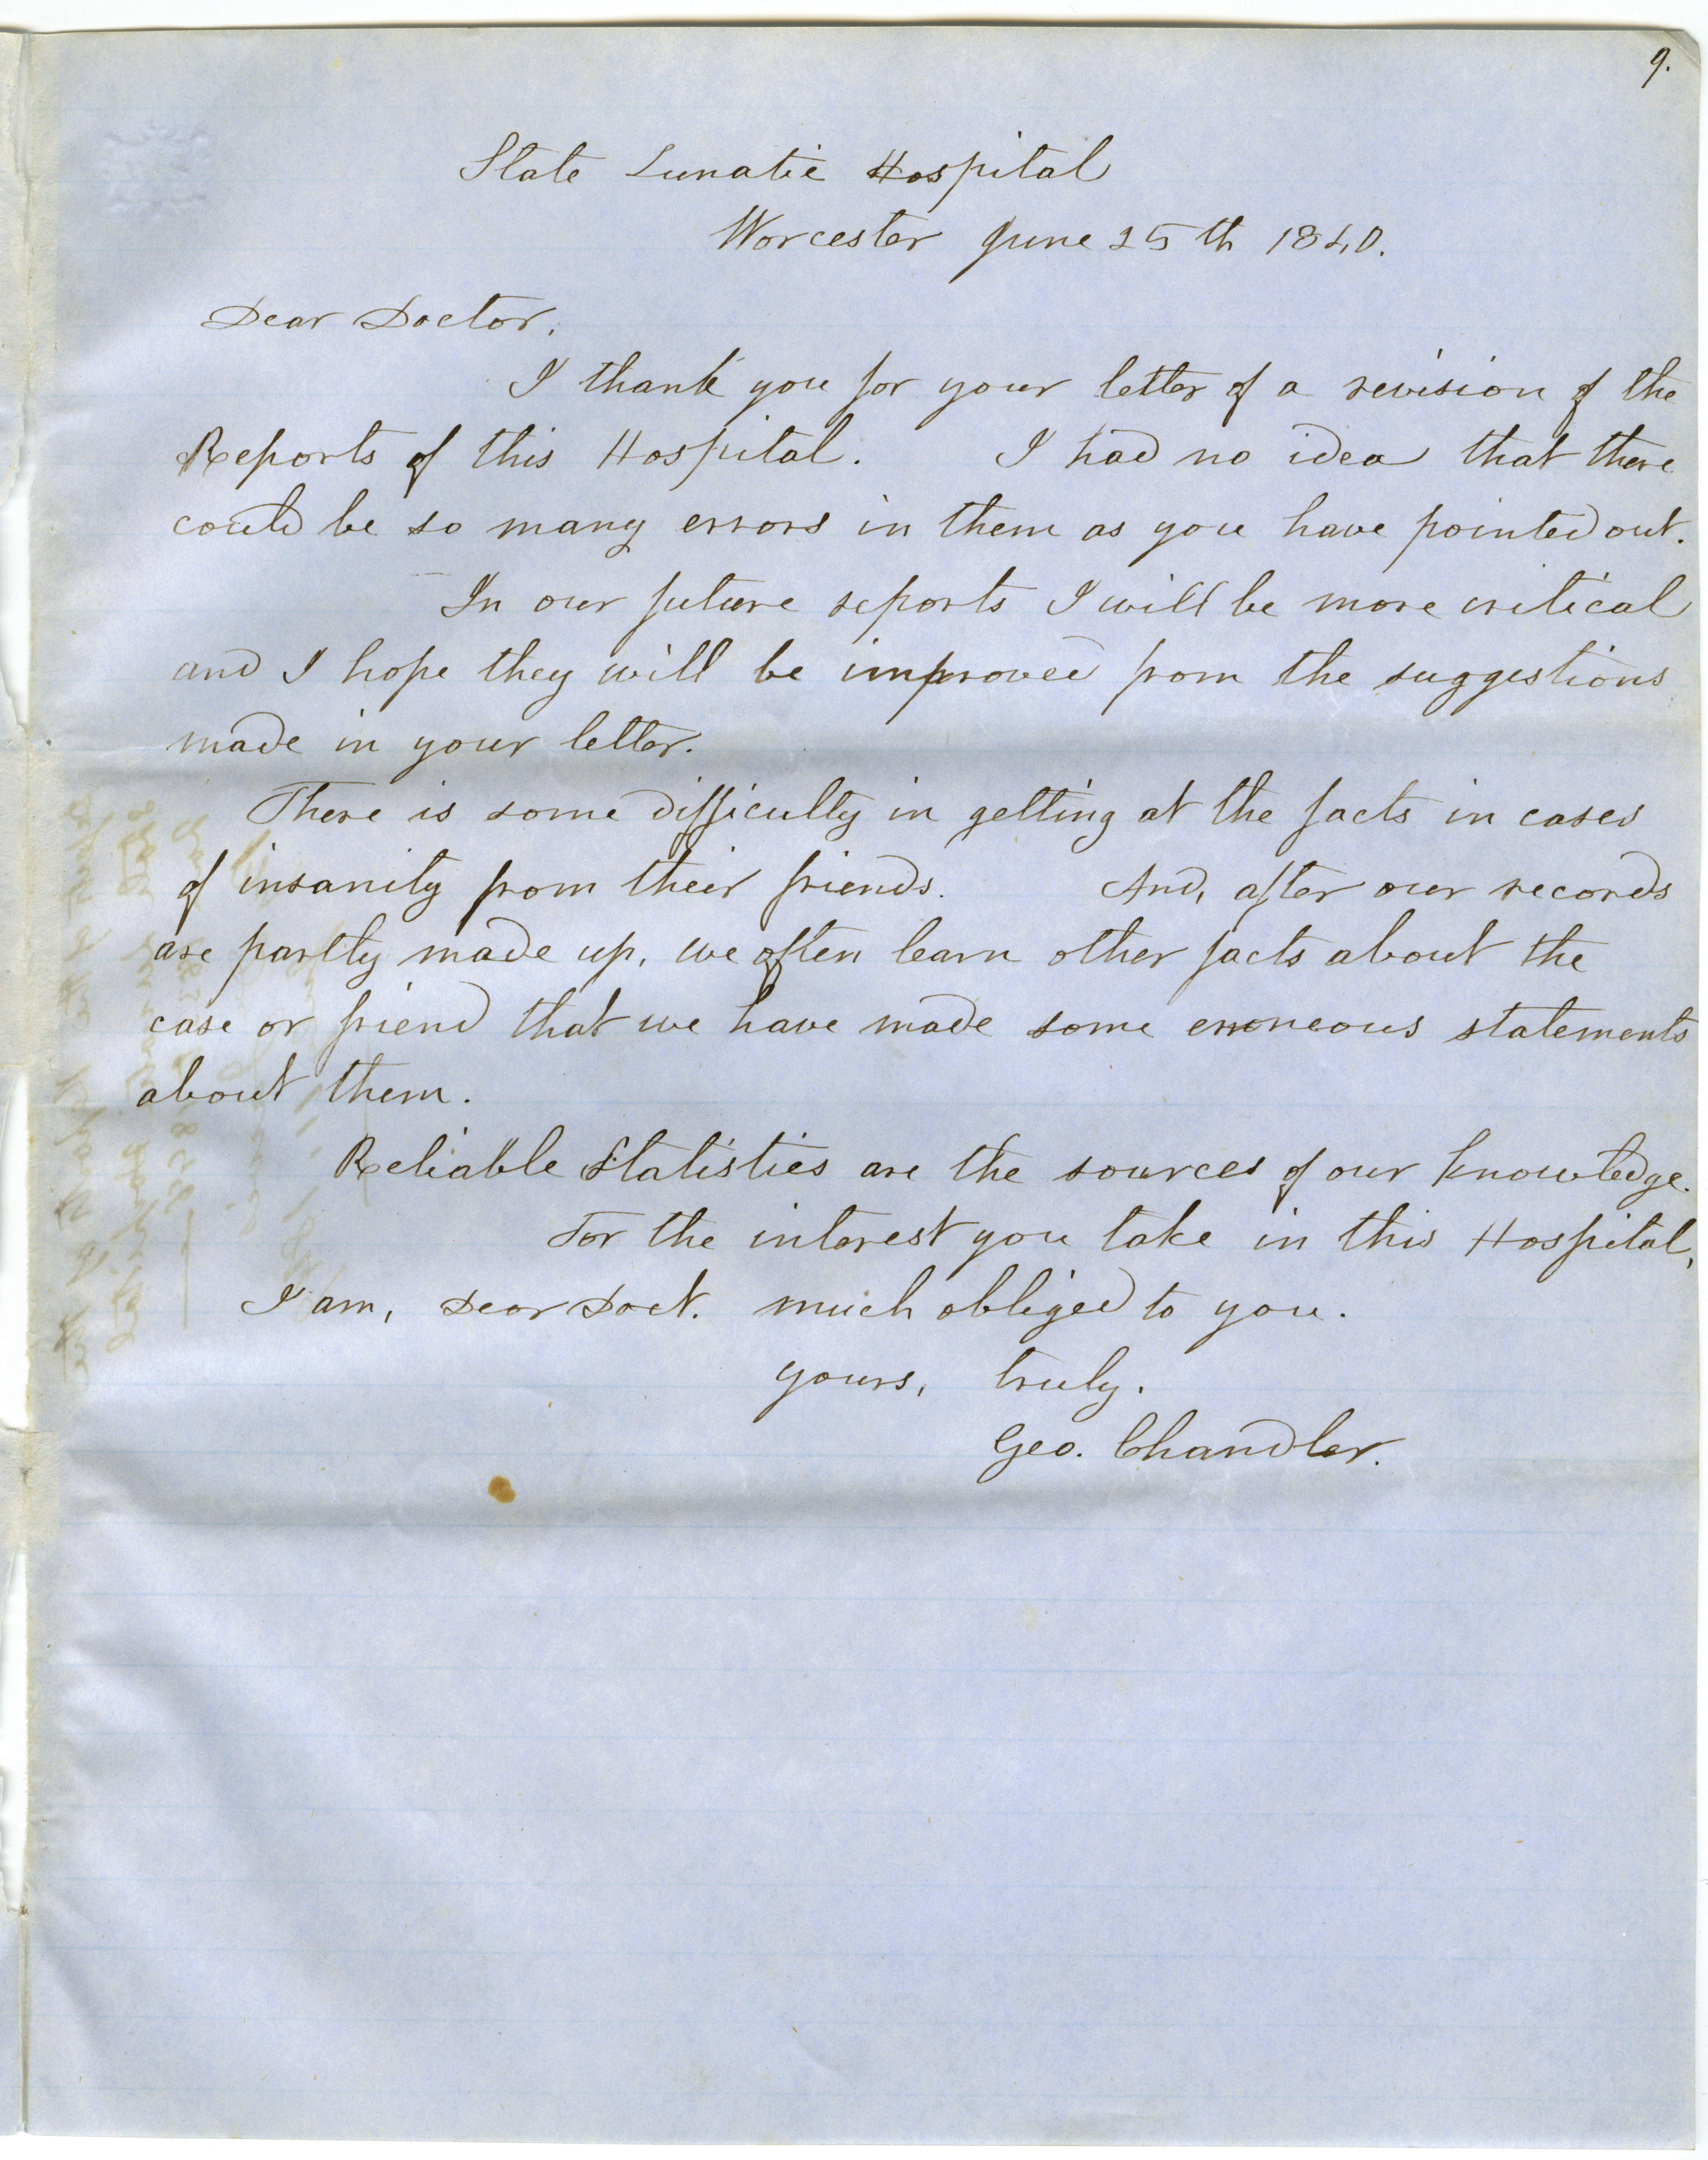 9.
State Lunatic Hospital
Worcester June 25th 1840.
Dear Doctor.
I thank you for your letter of a revision of the
Reports of this Hospital. I had no idea that there
could be so many errors in them as you have pointed out.
In our future reports I will be more critical
and I hope they will be improved from the suggestions
made in your letter.
There is some difficulty in getting at the facts in cases
of insanity from their friends. And, after our records
are partly made up, we often learn other facts about the
case or friend that we have made some erroneous statements
about them.
Reliable Statistics are the sources of our knowledge.
For the interest you take in this Hospital,
I am, Dear Doct. much obliged to you.
yours, truly.
Geo. Chandler.